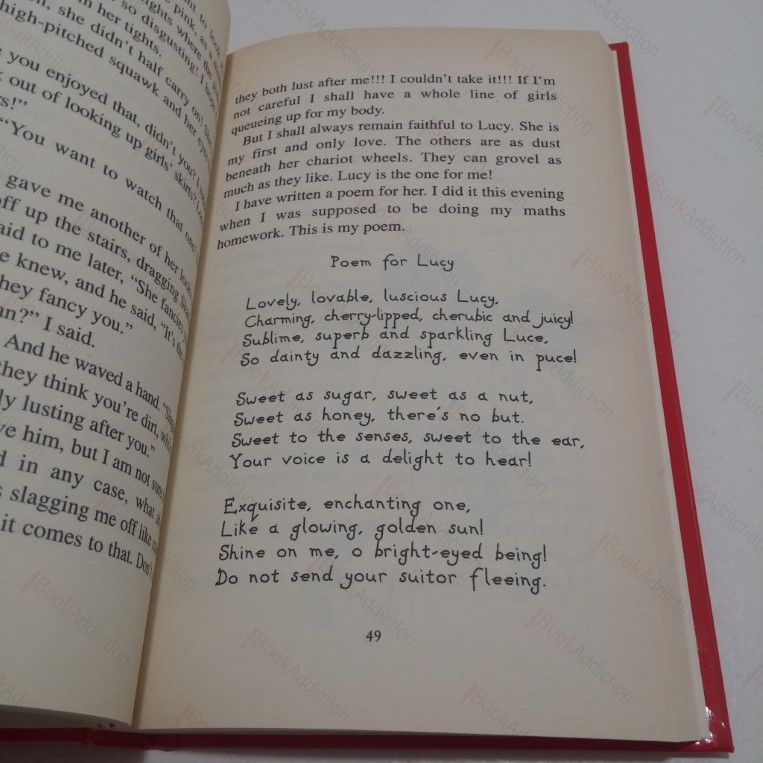 pink as a
so disgusting! I
in her tights.
she didn't half carry on!
high-pitched squawk and her eyes
you enjoyed that, didn't you?
out of looking up girls' skirts?
"You want to watch that one!
gave me another of her
off up the stairs, dragging
said to me later, "She fancies
knew, and he said, "It's
they fancy you."
I said.
And he waved a hand.
they think you're dirt,
lusting after you."
him, but I am not sure
in any case, what
slagging me off like
it comes to that. Don't
they both lust after me!!! I couldn't take it!!! If I'm
not careful I shall have a whole line of girls
queueing up for my body.
But I shall always remain faithful to Lucy. She is
my first and only love. The others are as dust
beneath her chariot wheels. They can grovel as
much as they like. Lucy is the one for me!
I have written a poem for her. I did it this evening
when I was supposed to be doing my maths
homework. This is my poem.
Poem for Lucy
Lovely, lovable, luscious Lucy,
Charming, cherry-lipped, cherubic and juicy!
Sublime, superb and sparkling Luce,
So dainty and dazzling, even in puce!
Sweet as sugar, sweet as a nut,
Sweet as honey, there's no but.
Sweet to the senses, sweet to the ear,
Your voice is a delight to hear!
Exquisite, enchanting one,
Like a glowing, golden sun!
Shine on me, o bright-eyed being!
Do not send your suitor fleeing.
49
BookAddiction